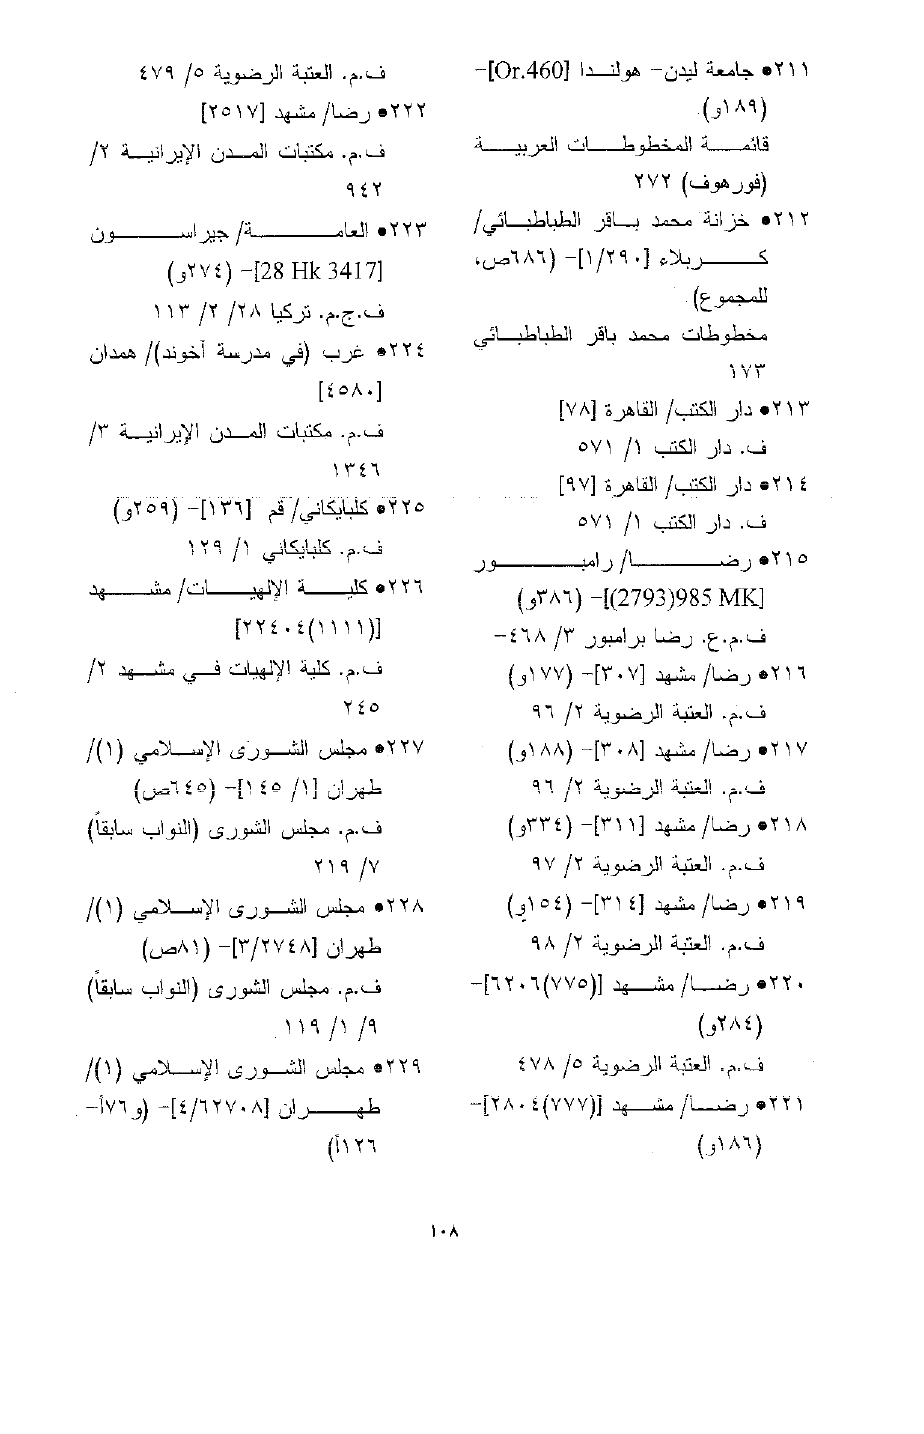 ٢١١• جامعة ليدن- هولندا [Or.460]-
(١٨٩و).
قائمة المخطوطات العربية
(فورهوف) ٢٧٢
٢١٢• خزانة محمد باقر الطباطبائي/
كربلاء [١/٢٩٠]- (٦٨٦ص،
للمجموع).
مخطوطات محمد باقر الطباطبائي
١٧٣
٢١٣• دار الكتب/ القاهرة [٧٨]
ف. دار الكتب ١/ ٥٧١
٢١٤• دار الكتب/ القاهرة [٩٧]
ف. دار الكتب ١/ ٥٧١
٢١٥• رضا/ رامبور
[985 MK(2793)]- (٣٨٦و)
ف.م.ع. رضا برامبور ٣/ ٤٦٨-
٢١٦• رضا/ مشهد [٣٠٧]- (١٧٧و)
ف.م. العتبة الرضوية ٢/ ٩٦
٢١٧• رضا/ مشهد [٣٠٨]- (١٨٨و)
ف.م. العتبة الرضوية ٢/ ٩٦
٢١٨• رضا/ مشهد [٣١١]- (٣٣٤و)
ف.م. العتبة الرضوية ٢/ ٩٧
٢١٩• رضا/ مشهد [٣١٤]- (١٥٤و)
ف.م. العتبة الرضوية ٢/ ٩٨
٢٢٠• رضا/ مشهد [(٧٧٥)٦٢٠٦]-
(٢٨٤و)
ف.م. العتبة الرضوية ٥/ ٤٧٨
٢٢١• رضا/ مشهد [(٧٧٧)٢٨٠٤]-
(١٨٦و)
ف.م. العتبة الرضوية ٥/ ٤٧٩
٢٢٢• رضا/ مشهد [٢٥١٧]
ف.م. مكتبات المدن الإيرانية ٢/
٩٤٢
٢٢٣• العامة/ جيراسون
[28 Hk 3417]- (٢٧٤و)
ف.ج.م. تركيا ٢٨/ ٢/ ١١٣
٢٢٤• غرب (في مدرسة آخوند)/ همدان
[٤٥٨٠]
ف.م. مكتبات المدن الإيرانية ٣/
١٣٤٦
٢٢٥• كلبايكاني/ قم [١٣٦]- (٢٥٩و)
ف.م. كلبايكاني ١/ ١٢٩
٢٢٦• كلية الإلهيات/ مشهد
[(١١١١)٢٢٤٠٤]
ف.م. كلية الإلهيات في مشهد ٢/
٢٤٥
٢٢٧• مجلس الشورى الإسلامي (١)/
طهران [١/ ١٤٥]- (٦٤٥ص)
ف.م. مجلس الشورى (النواب سابقاً)
٧/ ٢١٩
٢٢٨• مجلس الشورى الإسلامي (١)/
طهران [٣/٢٧٤٨]- (٨١ص)
ف.م. مجلس الشورى (النواب سابقاً)
٩/ ١/ ١١٩
٢٢٩• مجلس الشورى الإسلامي (١)/
طهران [٤/٦٢٧٠٨]- (و٧٦أ-
١٢٦أ)
١٠٨